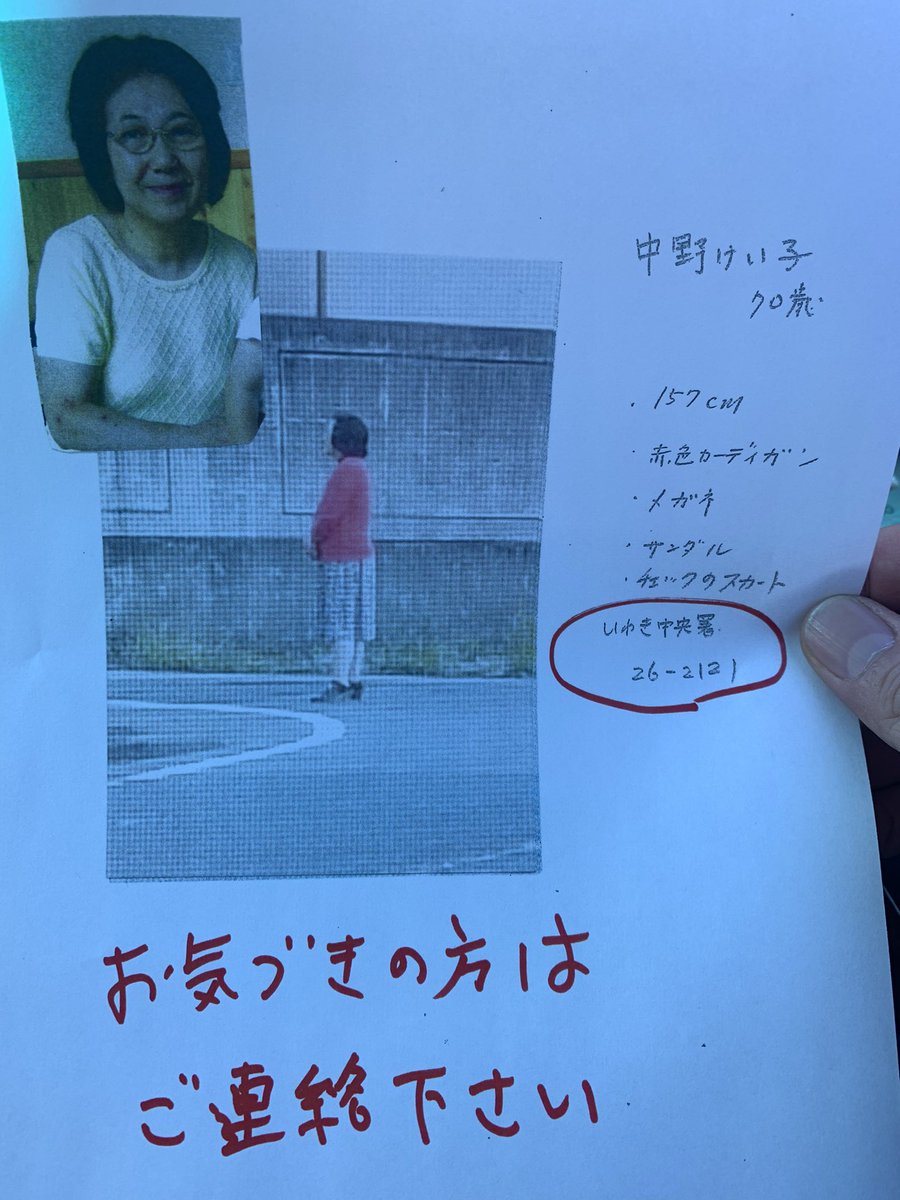 中野けい子
70歳
・157cm
・赤色カーディガン
・メガネ
・サンダル
・チェックのスカート
いわき中央署
26-2121
お気づきの方は
ご連絡下さい